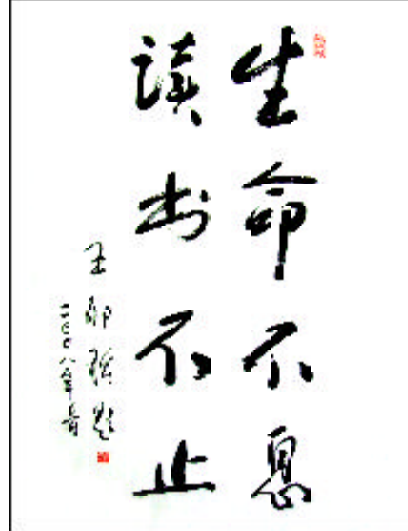 生命不息
读书不止
王郁强题
二〇〇八年春